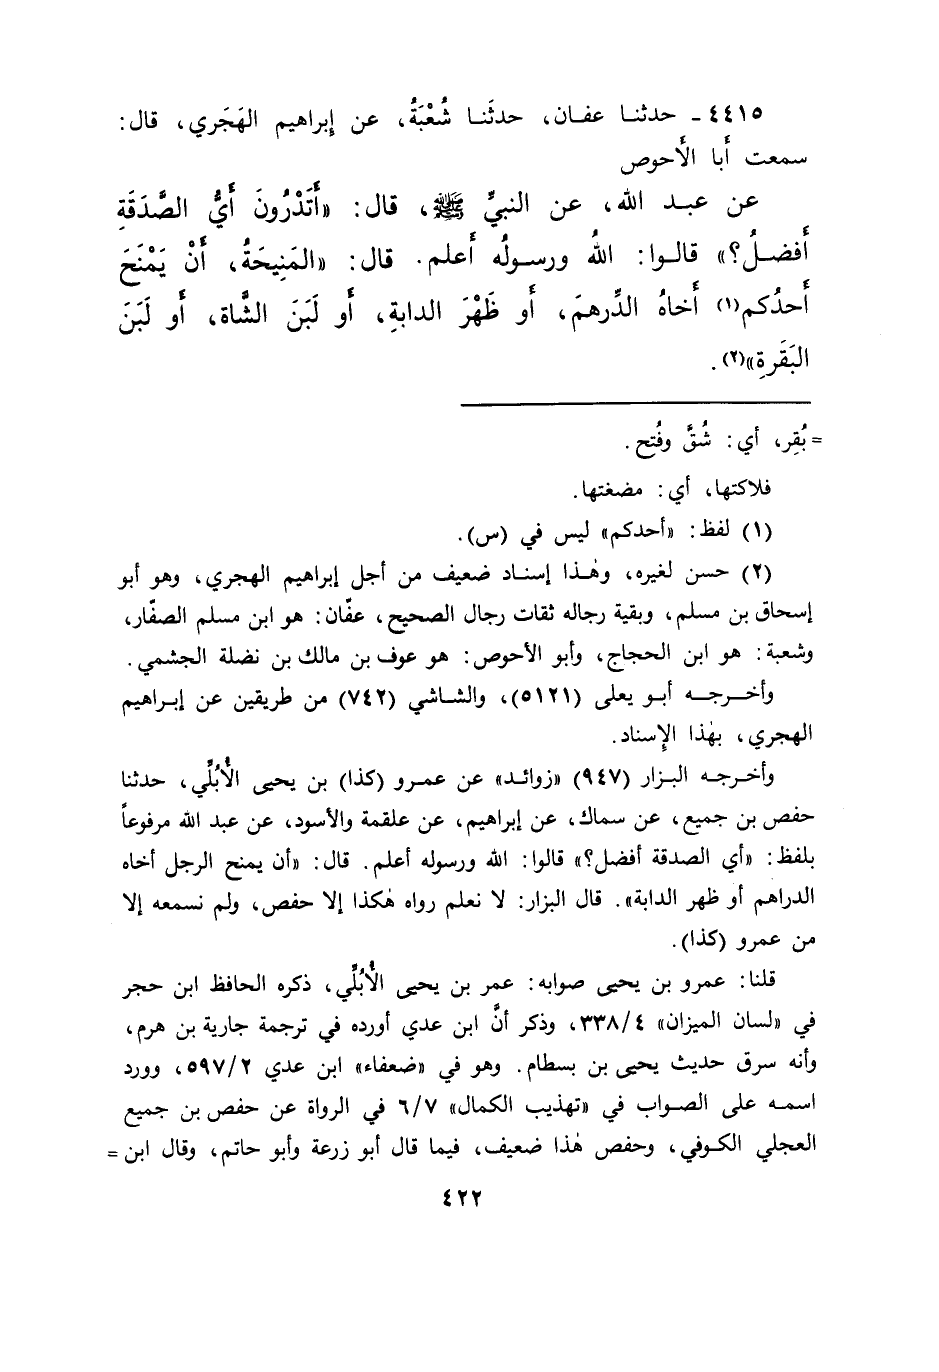 ٤٤١٥ ـ حدثنـا عفـان، حدثَنـا شُعْبَةُ، عن إبراهيم الهَجَري، قال:
سمعت أَبا الأَحوص
عن عبـد الله، عن النبيِّ ﷺ، قال: «أَتَدْرُونَ أَيُّ الصَّدَقَةِ
أَفضـلُ؟» قالـوا: اللهُ ورسـولُه أَعلم. قال: «المَنِيحَةُ، أَنْ يَمْنَحَ
أَحدُكم(١) أَخاهُ الدِّرهمَ، أَو ظَهْرَ الدابةِ، أَو لَبَنَ الشَّاة، أَو لَبَنَ
البَقَرةِ»(٢).
= بُقِر، أي: شُقَّ وفُتح.
فلاكتها، أي: مضغتها.
(١) لفظ: «أحدكم» ليس في (س).
(٢) حسن لغيره، وهٰـذا إسنـاد ضعيف من أجل إبراهيم الهجري، وهو أبو
إسحاق بن مسلم، وبقية رجاله ثقات رجال الصحيح، عفّان: هو ابن مسلم الصفّار،
وشعبة: هو ابن الحجاج، وأبو الأحوص: هو عوف بن مالك بن نضلة الجشمي.
وأخـرجـه أبـو يعلى (٥١٢١)، والشـاشي (٧٤٢) من طريقين عن إبـراهيم
الهجري، بهٰذا الإسناد.
وأخـرجـه البـزار (٩٤٧) «زوائـد» عن عمـرو (كذا) بن يحيى الأُبُلِّي، حدثنا
حفص بن جميع، عن سماك، عن إبراهيم، عن علقمة والأسود، عن عبد الله مرفوعاً
بلفظ: «أي الصدقة أفضل؟» قالوا: الله ورسوله أعلم. قال: «أن يمنح الرجل أخاه
الدراهم أو ظهر الدابة». قال البزار: لا نعلم رواه هٰكذا إلا حفص، ولم نسمعه إلا
من عمرو (كذا).
قلنا: عمرو بن يحيى صوابه: عمر بن يحيى الأُبُلِّي، ذكره الحافظ ابن حجر
في «لسان الميزان» ٣٣٨/٤، وذكر أنَّ ابن عدي أورده في ترجمة جارية بن هرم،
وأنه سرق حديث يحيى بن بسطام. وهو في «ضعفاء» ابن عدي ٥٩٧/٢، وورد
اسمـه على الصـواب في «تهذيب الكمال» ٦/٧ في الرواة عن حفص بن جميع
العجلي الكـوفي، وحفص هٰذا ضعيف، فيما قال أبو زرعة وأبو حاتم، وقال ابن =
٤٢٢